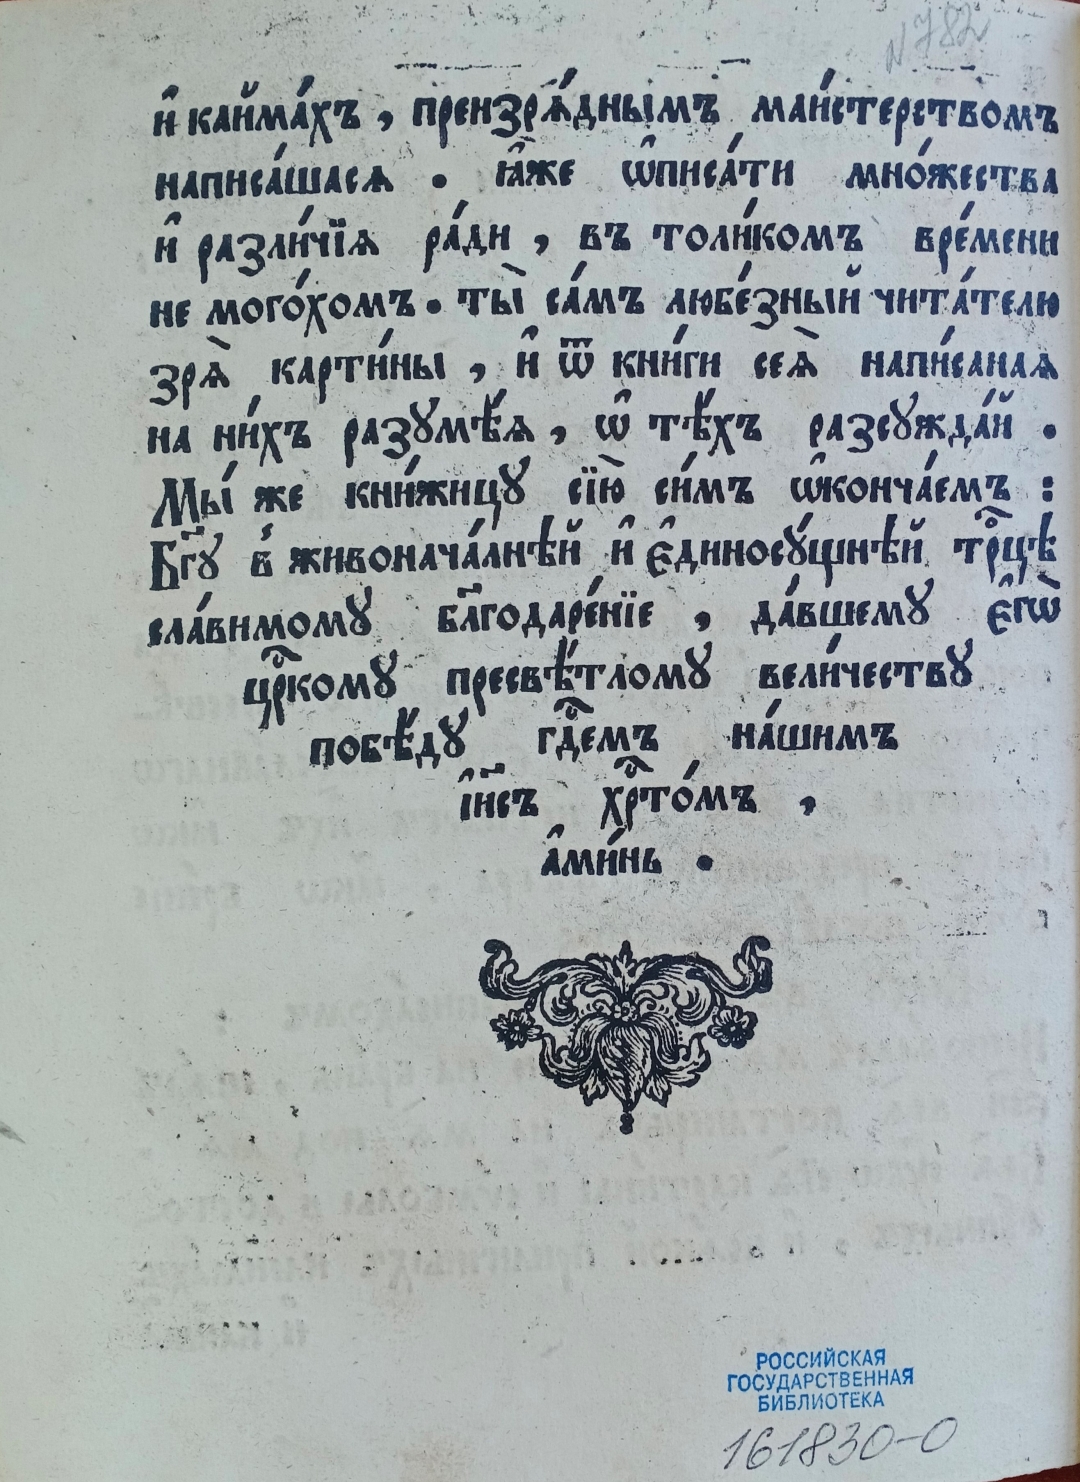 N 782
и҆ кайма́хъ, преизрѧ́дным̾ъ маи́стерством̾ъ
написа́шасѧ. ꙗ҆̀же ѡ҆писа́ти мно́жества
и҆ разли́чїѧ ра́ди, въ толи́комъ вре́мени
не мого́хомъ. ты̀ са́мъ любе́зный чита́телю
зрѧ̀ карти́ны, и҆ ѿ кни́ги сеѧ̀ напи́санаѧ
на ни́хъ разꙋмѣ́ѧ, ѡ҆ тѣ́хъ разсꙋжда́й.
Мы́ же кни́жицꙋ сїю̀ си́мъ ѡ҆конча́емъ:
Бг҃ꙋ в̾ живонача́лнѣй и҆ є҆диносꙋ́щнѣй трⷪ҇цѣ
сла́вимомꙋ бл҃годаре́нїе, да́вшемꙋ є҆гѡ̀
црⷭ҇комꙋ пресвѣ́тломꙋ вели́чествꙋ
побѣ́дꙋ гдⷭ҇емъ на́шимъ
і҆и҃съ хрⷭ҇то́мъ,
а҆ми́нь.
РОССИЙСКАЯ
ГОСУДАРСТВЕННАЯ
БИБЛИОТЕКА
161830-О